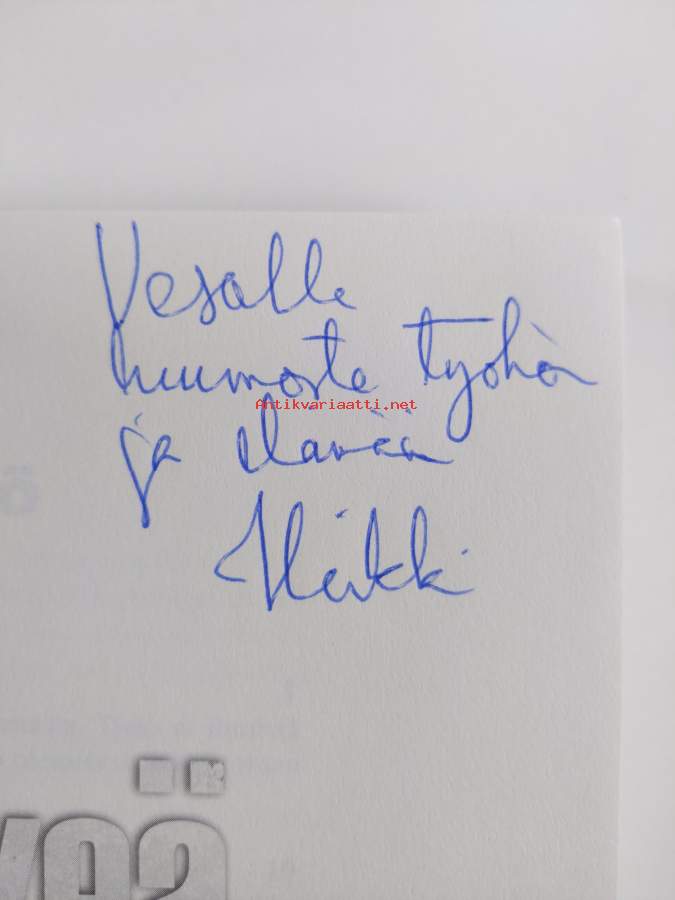 Vesalle
huumorta työhön
Antikvariaatti.net
ja elämään
Heikki